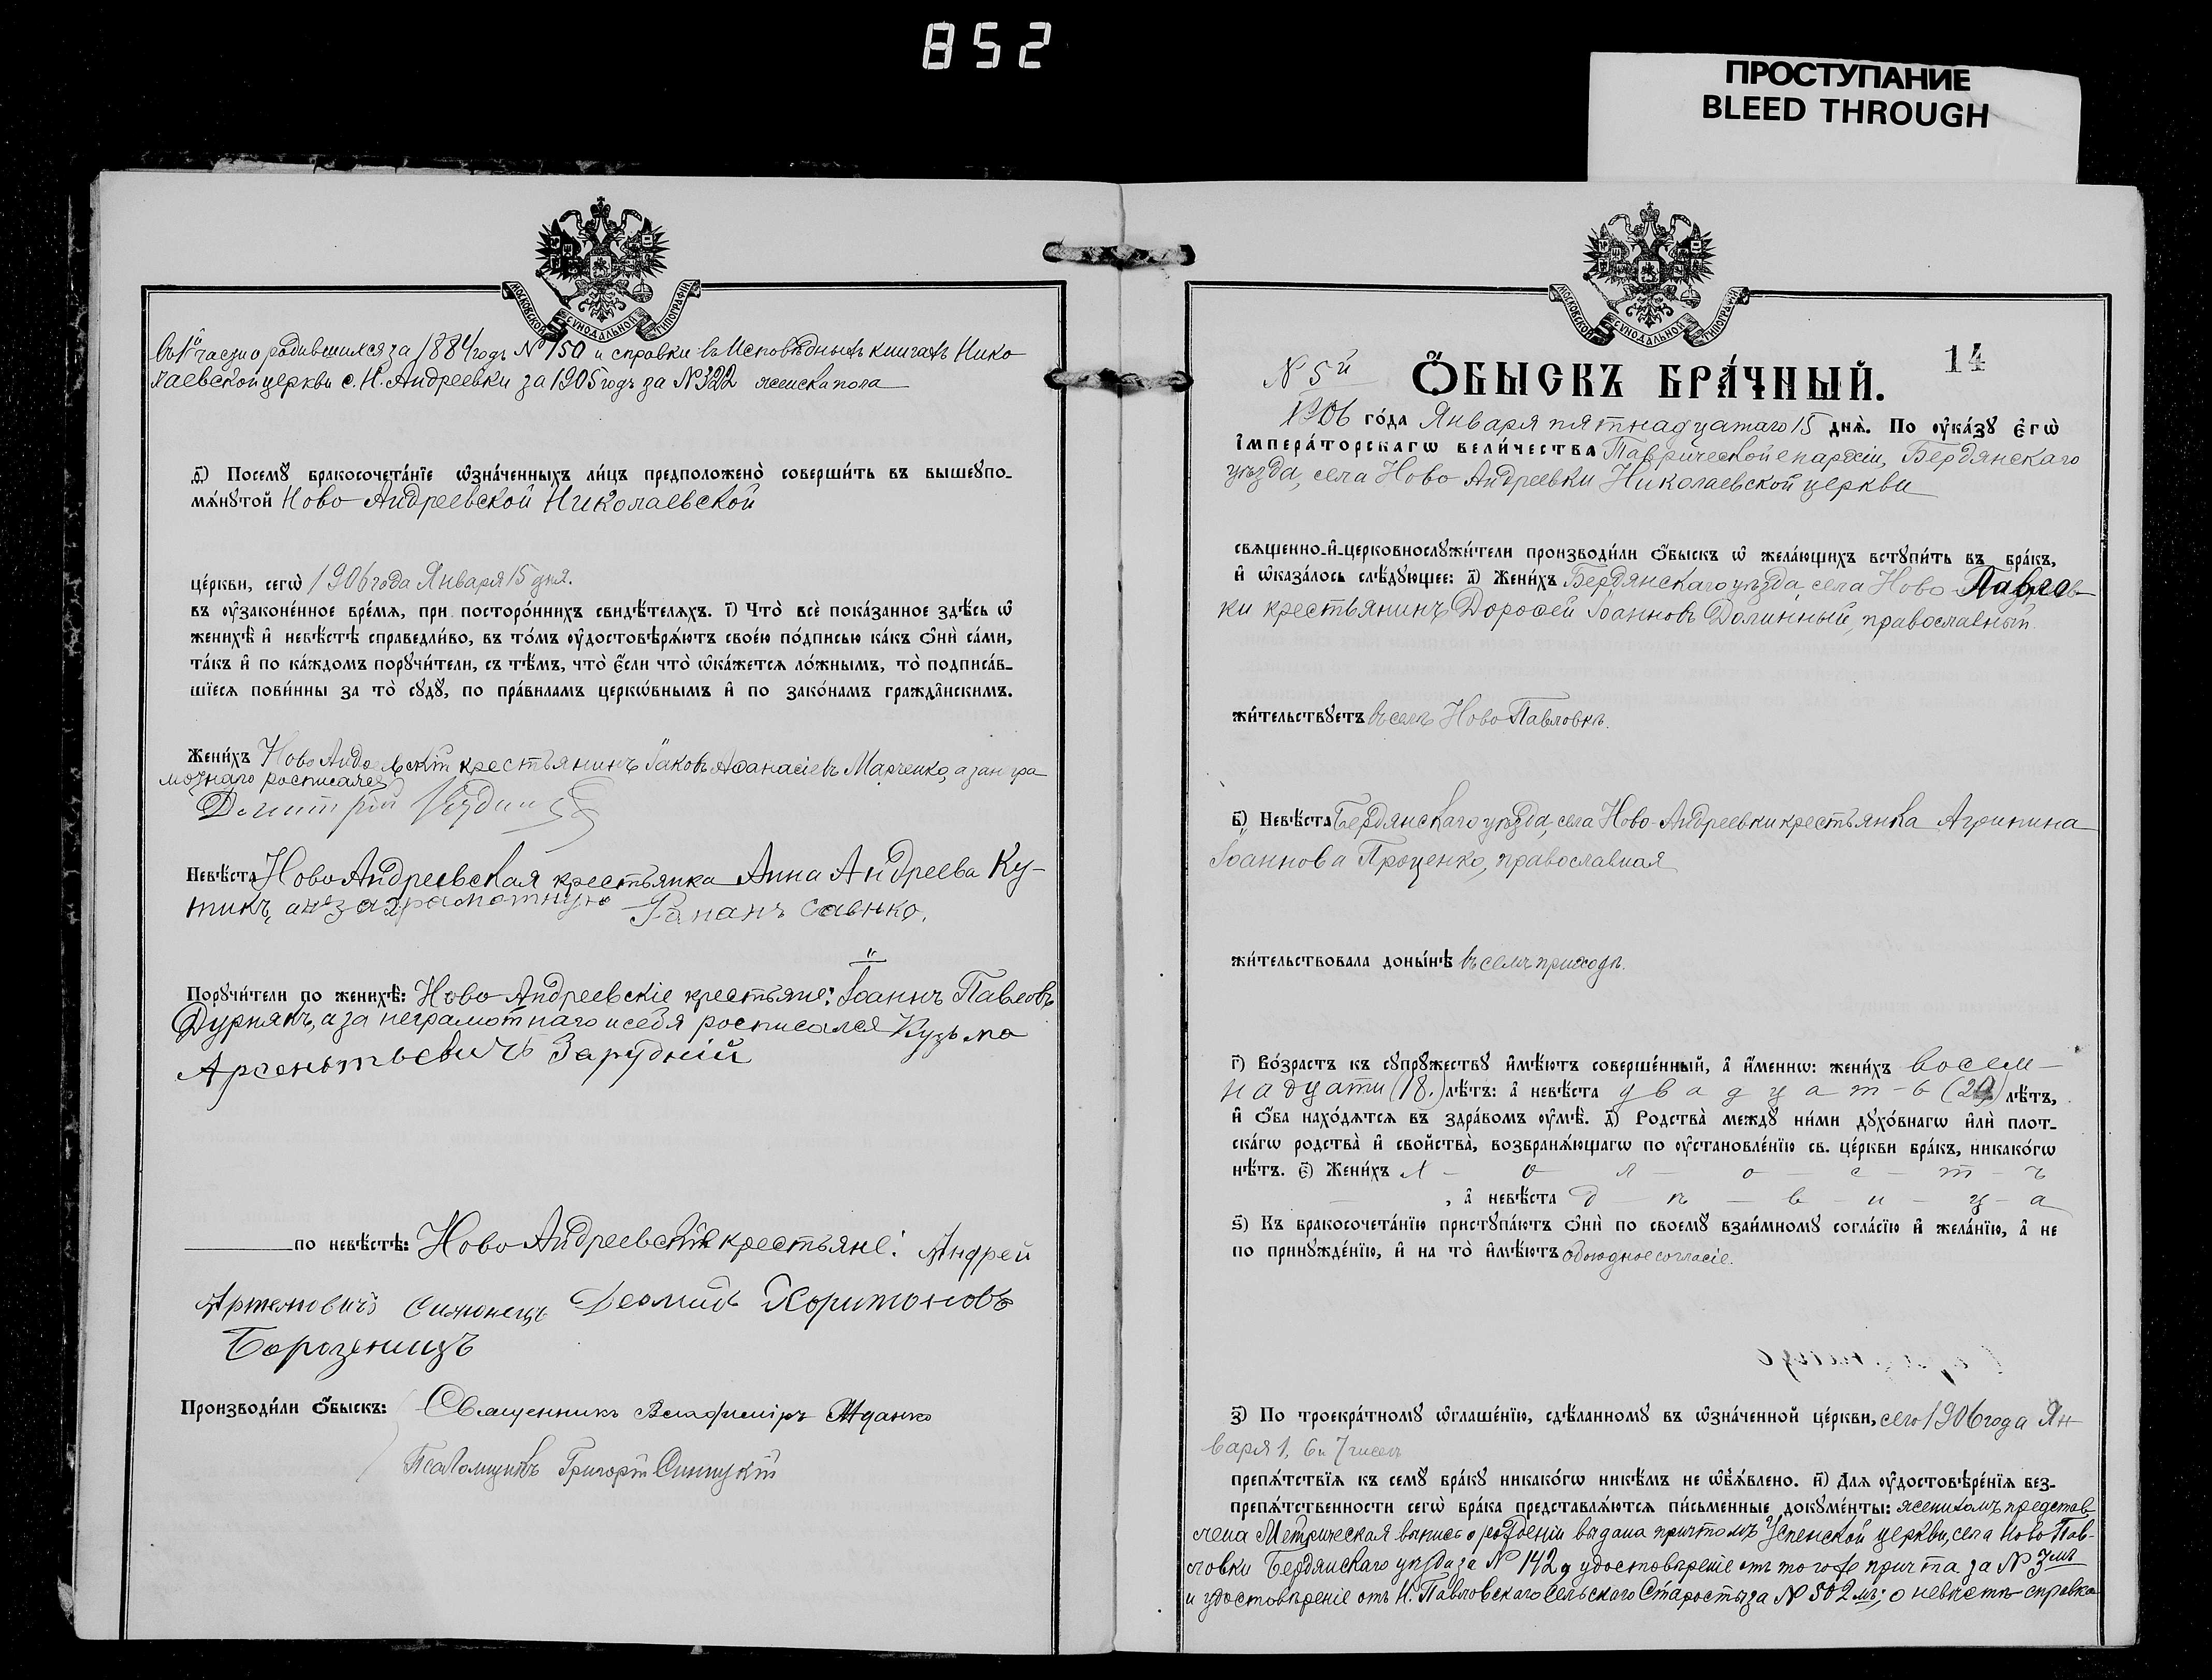 852
ПРОСТУПАНИЕ
BLEED THROUGH
МОСКОВСКОЙ СѴНОДАЛЬНОЙ ТИПОГРАФІИ
въ 1й части о родившихся за 1884 годъ № 150 и справки въ Исповѣдныхъ книгахъ Нико
лаевской церкви с. Н. Андреевки за 1905 годъ за № 322 женска пола
д҃) Посемꙋ бракосочета́нїе ѡ҆зна́ченныхъ ли́цъ предположено̀ соверши́ть въ вышеꙋпо-
мѧ́нꙋтой Ново Андреевской Николаевской
це́ркви, сегѡ̀ 1906 года Января 15 дня.
въ ᲂу҆законе́нное вре́мѧ, при посторо́ннихъ свидѣ́телѧхъ. і҃) Что̀ всѐ пока́занное здѣ́сь ѡ҆
женихѣ̀ и҆ невѣ́стѣ справедли́во, въ то́мъ ᲂу҆достовѣрѧ́ютъ свое́ю по́дписью ка́къ ѻ҆нѝ са́ми,
та́къ и҆ по ка́ждомъ порꙋчи́тели, съ тѣ́мъ, что̀ є҆́сли что̀ ѡ҆ка́жетсѧ ло́жнымъ, то̀ подписа́в-
шїесѧ пови́нны за то̀ сꙋдꙋ̀, по пра́виламъ церкѡ́внымъ и҆ по зако́намъ гражда̑нскимъ.
Жени́хъ Ново Андреевскій крестьянинъ Іаковъ Аѳанасіевъ Марченко, а за негра
мотнаго росписался
Дмитрій
Невѣ́ста Ново Андреевская крестьянка Анна Андреева Ку-
тикъ, а неграмотную Савнко.
Порꙋчи́тели по женихѣ̀: Ново Андреевскіе крестьяне: Іоаннъ Павловъ
Дурнякъ, а за неграмотнаго и себя росписался Кузьма
Арсентьевичъ Зарудній
по невѣ́стѣ: Ново Андреевскіе крестьяне: Андрей
Артемовичъ Деомидъ Харитоновъ
Производи́ли ѻ҆́быскъ: Священникъ Владиміръ Жданко
Псаломщикъ Григорій Синицкій
МОСКОВСКОЙ СѴНОДАЛЬНОЙ ТИПОГРАФІИ
14
№ 5й
Ѻ҆́БЫСКЪ БРА́ЧНЫЙ.
1906 го́да Января пятнадцатаго 15 днѧ̀. По ᲂу҆ка́зꙋ є҆гѡ̀
і҆мпера́торскагѡ вели́чества Таврической епархіи, Бердянскаго
уѣзда, села Ново Андреевки Николаевской церкви
свѧщенно-и҆-церковнослꙋжи́тели производи́ли ѻ҆́быскъ ѡ҆ жела́ющихъ встꙋпи́ть въ бра́къ,
и҆ ѡ҆каза́лось слѣ́дꙋющее: а҃) Жени́хъ Бердянскаго уѣзда, села Ново-Павлов
ки крестьянинъ Дороѳей Іоанновъ Долинный, православный.
жи́тельствꙋетъ въ селѣ Ново Павловкѣ.
в҃) Невѣ́ста Бердянскаго уѣзда, села Ново-Андреевки крестьянка Агрипина
Іоаннова Проценко, православная
жи́тельствовала доны́нѣ въ семъ приходѣ.
г҃) Во́зрастъ къ сꙋпрꙋ́жествꙋ и҆мѣ́ютъ соверше́нный, а҆ и҆́меннѡ: жени́хъ восем-
надцати (18.) лѣ́тъ: а҆ невѣ́ста двадцать (20) лѣ́тъ,
и҆ ѻ҆́ба нахо́дѧтсѧ въ здра́вомъ ᲂу҆мѣ̀. д҃) Родства̀ междꙋ̀ ни́ми дꙋхо́внагѡ и҆лѝ плот-
ска́гѡ родства̀ и҆ сво́йства̀, возбранѧ́ющагѡ по ᲂу҆становле́нїю св. це́ркви бра́къ, никако́гѡ
нѣ́тъ. є҃) Жени́хъ х - о л - о - с - т - ъ
, а҆ невѣ́ста д - ѣ - в - и - ц - а
ѕ҃) Къ бракосочета́нїю пристꙋпа́ютъ ѻ҆нѝ по своемꙋ̀ взаи́мномꙋ согла́сїю и҆ жела́нїю, а҆ не
по принꙋжде́нїю, и҆ на то̀ и҆мѣ́ютъ обоюдное согласіе.
з҃) По троекра́тномꙋ ѡ҆глаше́нїю, сдѣ́ланномꙋ въ ѡ҆зна́ченной це́ркви, сего 1906 года Ян-
варя 1, 6 и 7 чиселъ
препѧ́тствїѧ къ семꙋ̀ бра́кꙋ никако́гѡ никѣ́мъ не ѡ҆б̾ѧ́влено. и҃) Длѧ ᲂу҆достовѣре́нїѧ без-
препѧ́тственности сегѡ̀ бра́ка представлѧ́ютсѧ пи́сьменные докꙋме́нты: женихомъ представ
лена Метрическая выпись о рожденіи выдана причтомъ Успенской церкви, села Ново Пав-
ловки Бердянскаго уѣзда за № 142, удостовѣреніе отъ того же причта за № 3мъ
и удостовѣреніе отъ Н. Павловскаго Сельскаго Старосты за № 502мъ; о невѣстѣ справка